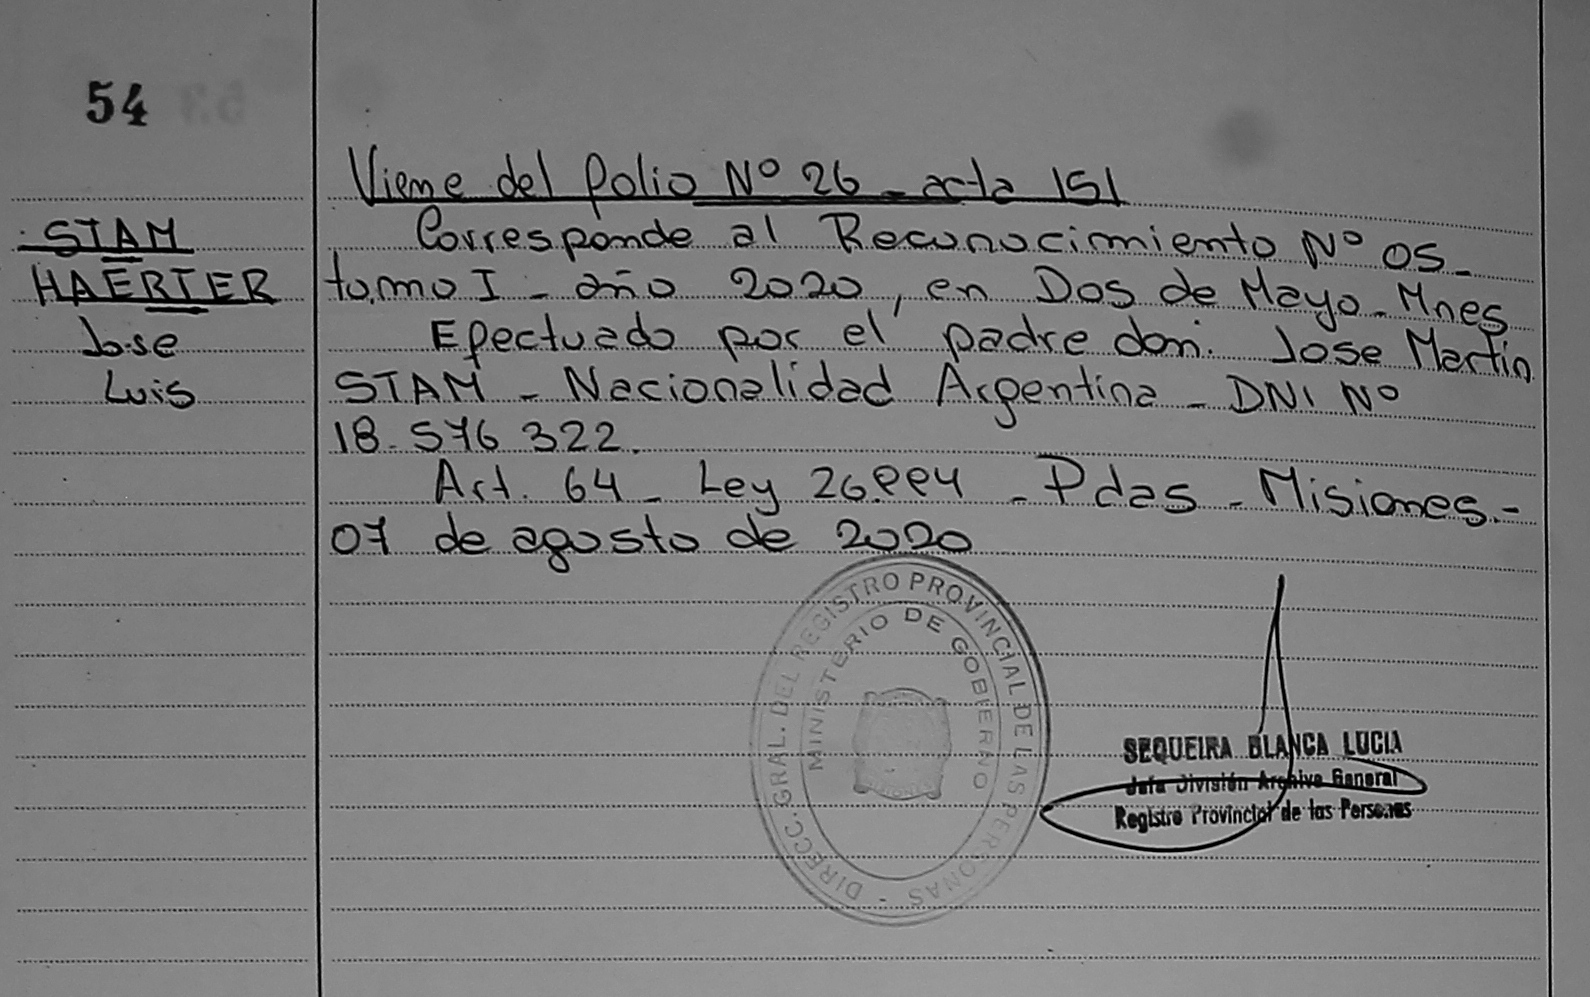 54
Viene del folio Nº 26 - acta 151
STAM
HAERTER
Jose
Luis
Corresponde al Reconocimiento Nº 05 -
tomo I - año 2020, en Dos de Mayo - Mnes
Efectuado por el padre don. Jose Martin
STAM - Nacionalidad Argentina - DNI Nº
18.576.322.
Art. 64 - Ley 26.994 - Pdas - Misiones.-
07 de agosto de 2020
DIRECC. GRAL. DEL REGISTRO PROVINCIAL DE LAS PERSONAS -
MINISTERIO DE GOBIERNO
SEQUEIRA BLANCA LUCIA
Jefa División Archivo General
Registro Provincial de las Personas